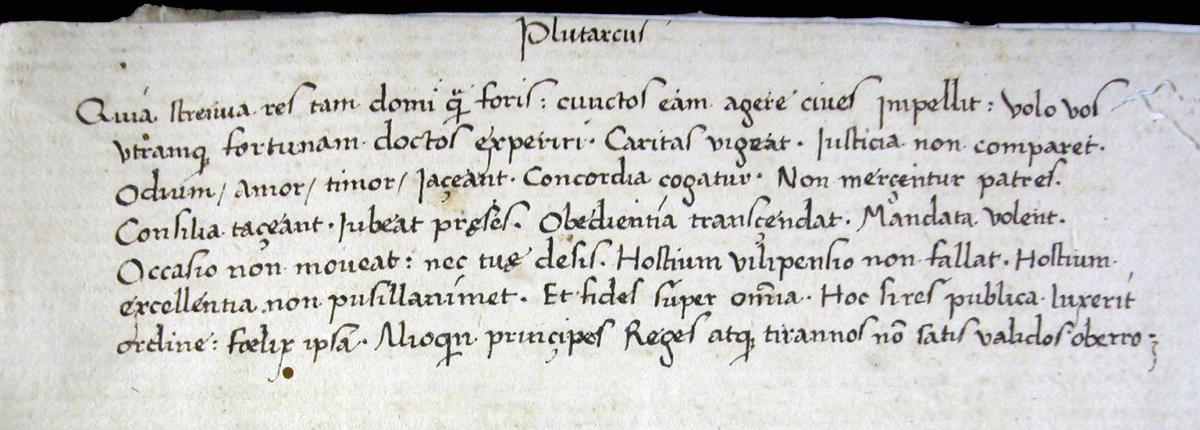 Plutarcus
Quia strenua res tam domi q̃ foris: cunctos eam agere cives Impellit: volo vos
utramq fortunam doctos experiri. Caritas vigeat. Iusticia non comparet.
Odium/ amor/ timor/ Iaçeant. Concordia cogatur. Non merçentur patres.
Consilia taçeant. Iubeat pręses. Obedientia transçendat. Mandata volent.
Occasio non moveat: nec tuę desis. Hostium vilipensio non fallat. Hostium
excellentia non pusillanimet. Et fides super om̃ia. Hoc si res publica luxerit
ordine: fœlix ipsa. Alioqn prinçipes Reges atq tirannos nõ satis validos oberro: